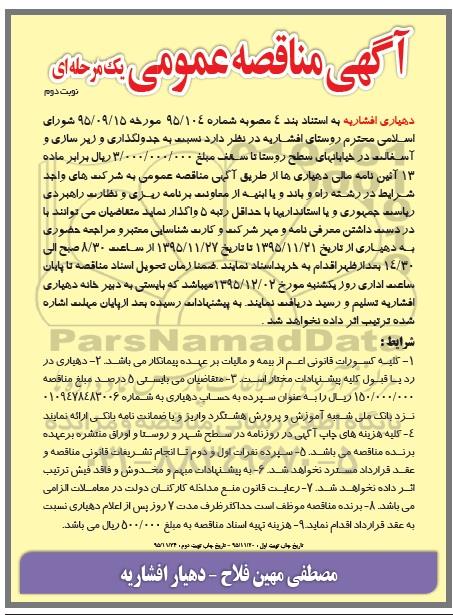 آگهی مناقصه عمومی یک مرحله ای
نوبت دوم
دهیاری افشاریه به استناد بند ٤ مصوبه شماره ۹۵/۱۰٤ مورخه ۹۵/۰۹/۱۵ شورای
اسلامی محترم روستای افشاریه در نظر دارد نسبت به جدولگذاری و زیر سازی و
آسفالت در خیابانهای سطح روستا تا سقف مبلغ ۳/۰۰۰/۰۰۰/۰۰۰ ریال برابر ماده
۱۳ آئین نامه مالی دهیاری ها از طریق آگهی مناقصه عمومی به شرکت های واجد
شرایط در رشته راه و باند و یا ابنیه از معاونت برنامه ریزی و نظارت راهبردی
ریاست جمهوری و یا استانداریها با حداقل رتبه ۵ واگذار نماید متقاضیان می توانند با
در دست داشتن معرفی نامه و مهر شرکت و کارت شناسایی معتبر و مراجعه حضوری
به دهیاری از تاریخ ۱۳۹۵/۱۱/۲۱ تا تاریخ ۱۳۹۵/۱۱/۲۷ از ساعت ۸/۳۰ صبح الی
۱٤/۳۰ بعدازظهر اقدام به خرید اسناد نمایند .ضمنا زمان تحویل اسناد مناقصه تا پایان
ساعت اداری روز یکشنبه مورخ ۱۳۹۵/۱۲/۰۲ میباشد که بایستی به دبیر خانه دهیاری
افشاریه تسلیم و رسید دریافت نمایند. به پیشنهادات رسیده بعد ازپایان مهلت اشاره
شده ترتیب اثر داده نخواهد شد .
شرایط :
۱- کلیه کسورات قانونی اعم از بیمه و مالیات بر عهده پیمانکار می باشد. ۲- دهیاری در
رد یا قبول کلیه پیشنهادات مختار است. ۳- متقاضیان می بایستی ۵ درصد مبلغ مناقصه
۱۵۰/۰۰۰/۰۰۰ ریال را به عنوان سپرده به حساب دهیاری به شماره ۰۱۰۹٤۷۸٤۸۳۰۰۶
نزد بانک ملی شعبه آموزش و پرورش هشتگرد واریز و یا ضمانت نامه بانکی ارائه نمایند
٤- کلیه هزینه های چاپ آگهی در روزنامه در سطح شهر و روستا و اوراق منتشره برعهده
برنده مناقصه می باشد. ۵- سپرده نفرات اول و دوم تا انجام تشریفات قانونی مناقصه و
عقد قرارداد مسترد نخواهد شد. ۶- به پیشنهادات مبهم و مخدوش و فاقد فیش ترتیب
اثر داده نخواهد شد. ۷- رعایت قانون منع مداخله کارکنان دولت در معاملات الزامی
می باشد. ۸- برنده مناقصه موظف است حداکثر ظرف مدت ۷ روز پس از اعلام دهیاری نسبت
به عقد قرارداد اقدام نماید. ۹- هزینه تهیه اسناد مناقصه به مبلغ ۵۰۰/۰۰۰ ریال می باشد.
تاریخ چاپ نوبت اول : ۹۵/۱۱/۲۰ - تاریخ چاپ نوبت دوم : ۹۵/۱۱/۲٤
مصطفی مهین فلاح - دهیار افشاریه
ParsNamadData